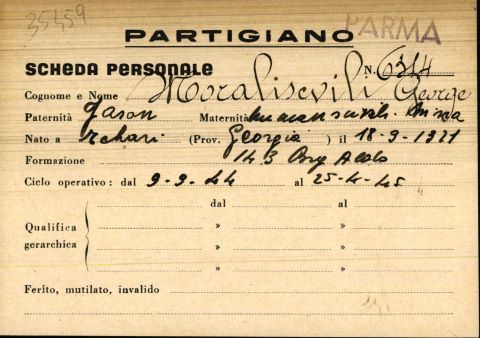 35459
PARMA
PARTIGIANO
SCHEDA PERSONALE N. 6314
Cognome e Nome Moralisevili George
Paternità Jason Maternità
Nato a (Prov. Georgia) il 18-9-1921
Formazione 143 Brg Aldo
Ciclo operativo: dal 9-9-44 al 25-4-45
dal al
Qualifica gerarchica » »
» »
» »
Ferito, mutilato, invalido